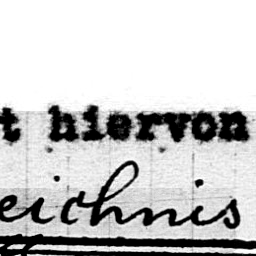 t hiervon
eichnis